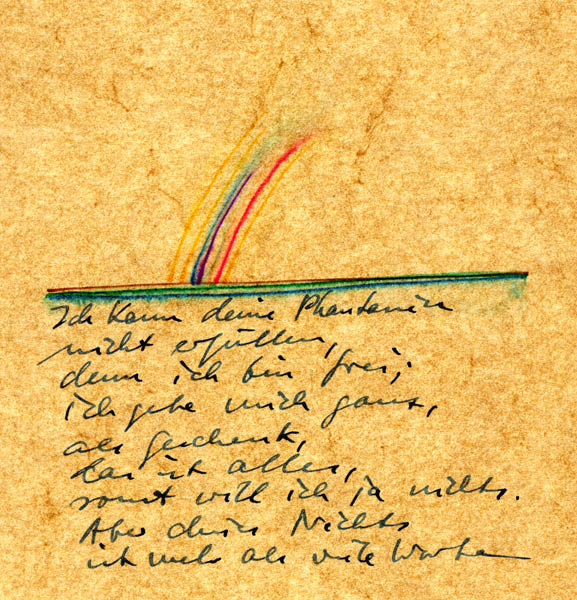 Ich kann deine Phantasien
nicht erfüllen,
denn ich bin frei;
ich gebe mich ganz,
als Geschenk,
das ist alles,
sonst will ich ja nichts.
Aber dein Nichts
ist mehr als viele Worte